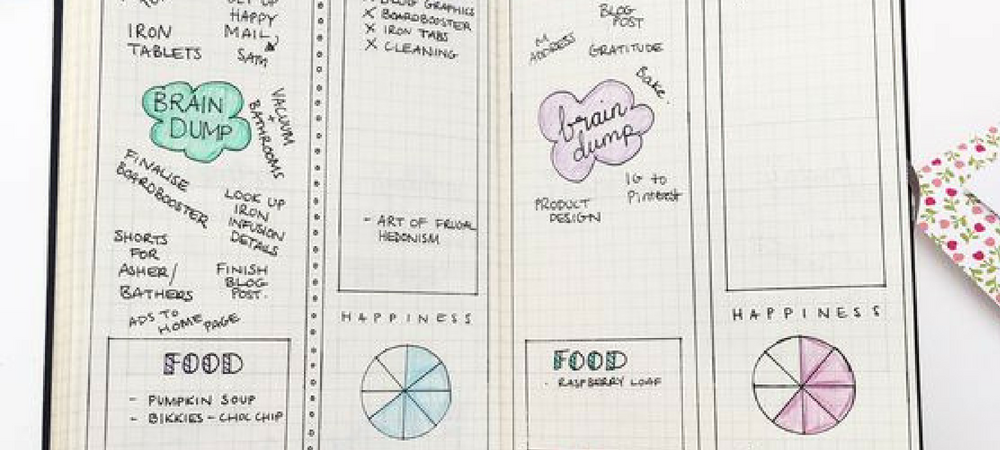 HAPPY
MAIL,
SAM
IRON
TABLETS
BRAIN
DUMP
VACUUM
+
BATHROOMS
FINALISE
BOARDBOOSTER
LOOK UP
IRON
INFUSION
DETAILS
SHORTS
FOR
ASHER/
BATHERS
FINISH
BLOG
POST.
ADS TO
HOME PAGE
FOOD
- PUMPKIN SOUP
- BIKKIES - CHOC CHIP
GRAPHICS
X BOARDBOOSTER
X IRON TABS
X CLEANING
- ART OF FRUGAL
HEDONISM
HAPPINESS
BLOG
POST
M
ADDRESS
GRATITUDE
Bake.
brain
dump
IG to
Pinterest
PRODUCT
DESIGN
FOOD
· RASPBERRY LOAF
HAPPINESS